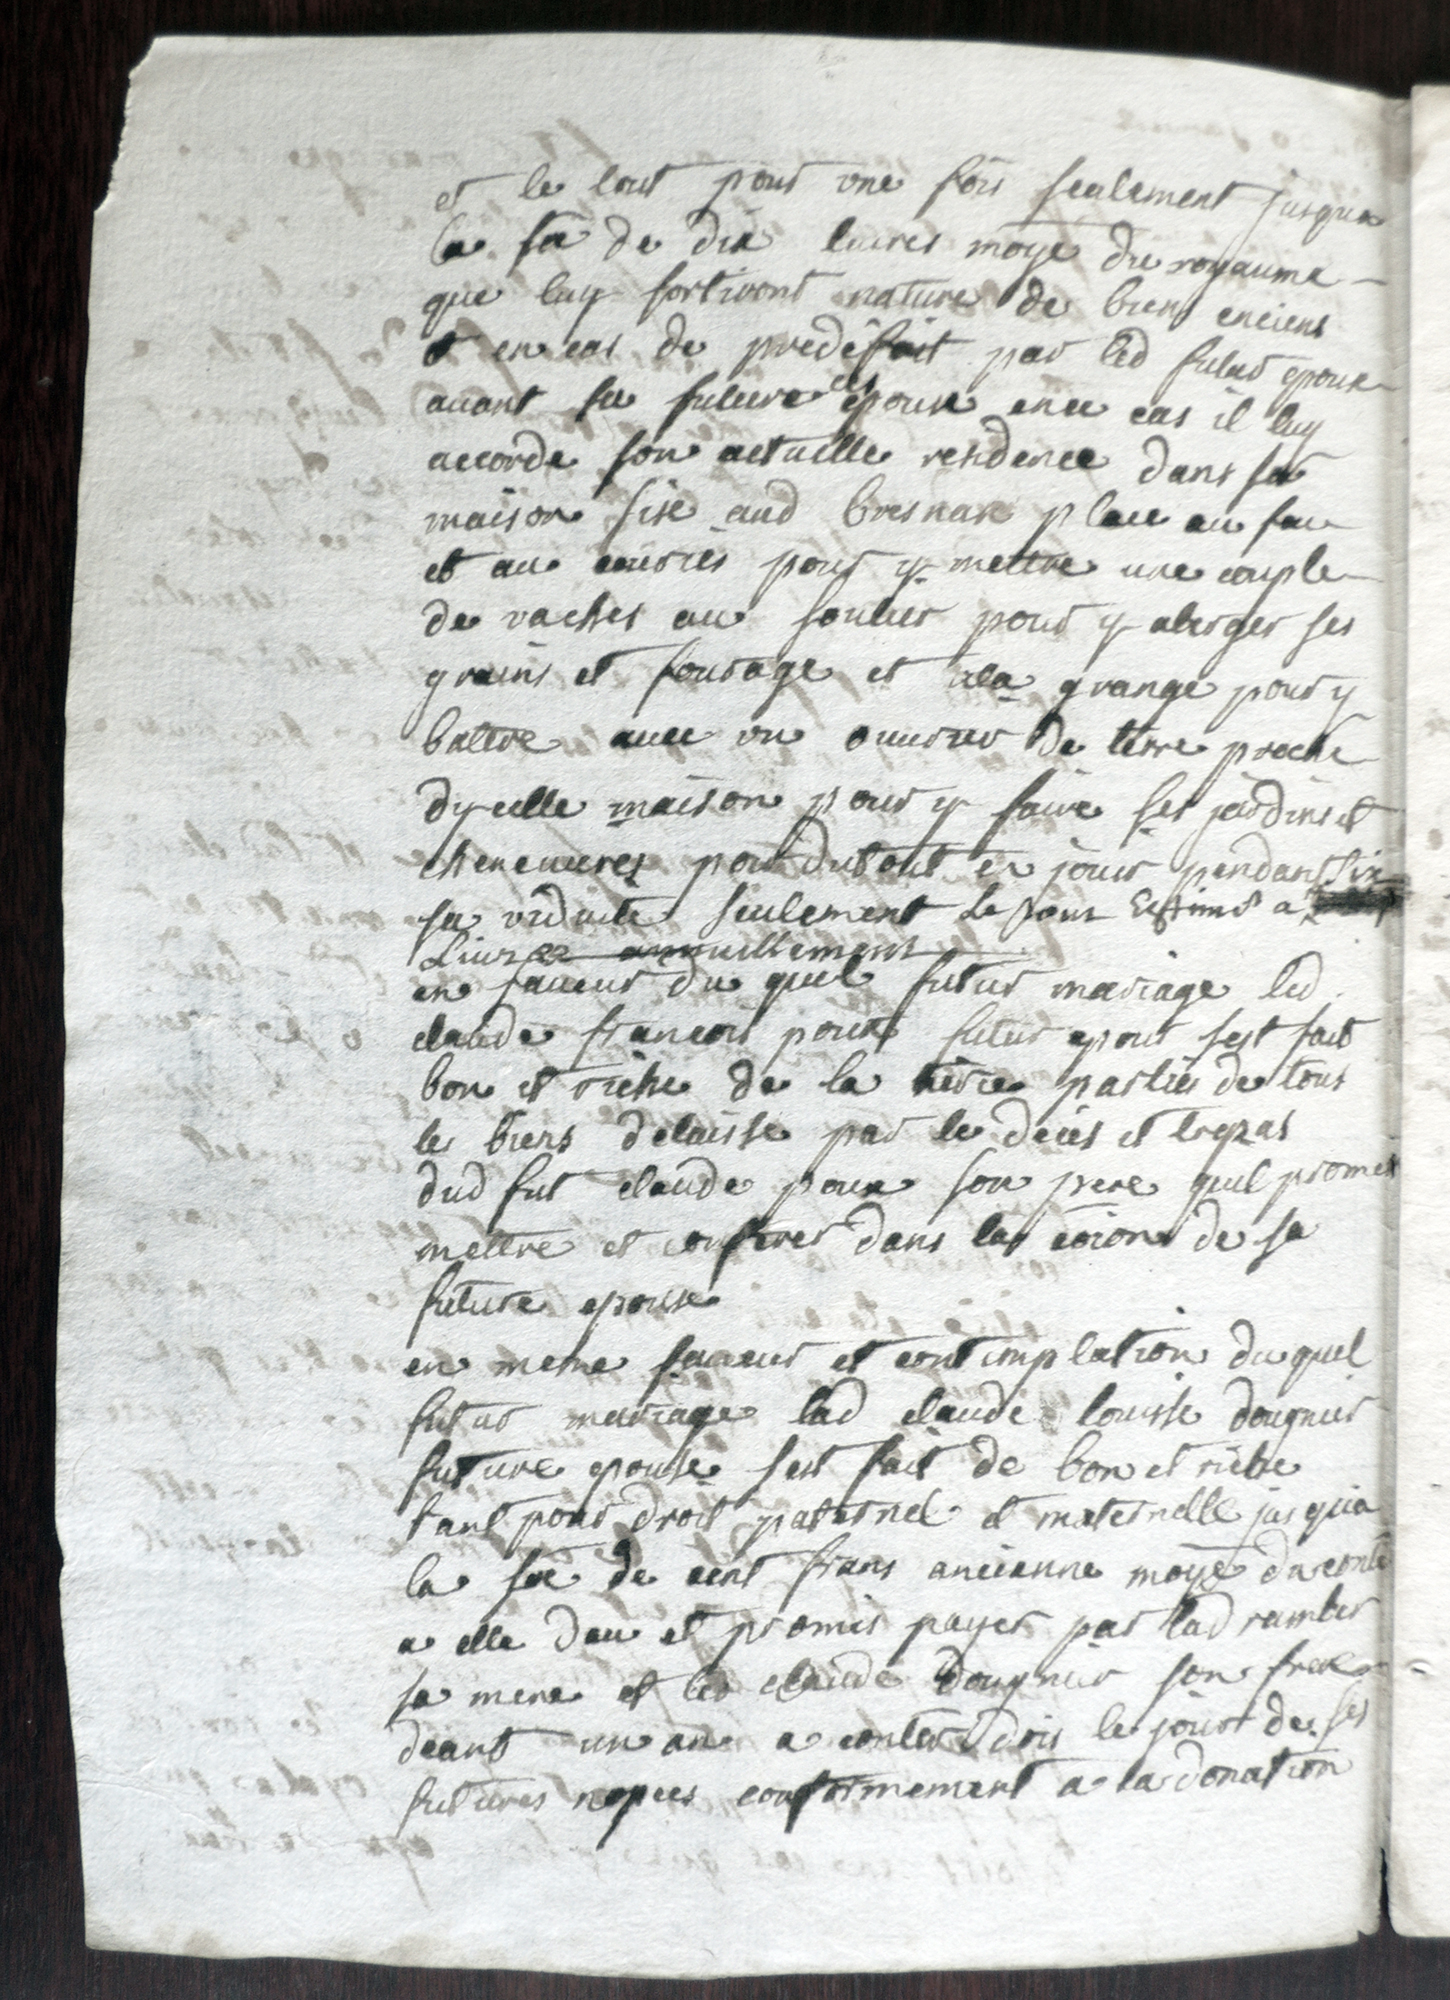 et le tout pour une fois seulement jusqua
la soe de dix livres moye du royaume
que luy sortiront nature de bien enciens
et en cas de predéfait par led futur epoux
avant sa future epouse en ce cas il luy
accorde son actuelle residence dans sa
maison sise aud place au feu
et au pour y mettre une couple
de vaches au soulier pour y aberger ses
grains et fourage et a la grange pour y
battre avec un ouvrier de terre proche
dycelle maison pour y faire ses jardins et
cheneuieres pendant
sa viduite seulement le tout Estimé a six
Livres annuellement
en faveur du quel futur mariage led
claude francois poux futur epoux sest fait
bon et riche de la parties de tous
le biens delaisse par le déces et trepas
dud fut claude poux son pere quil promet
mettre et conferer dans la de sa
future epouse
en meme faveur et contemplation du quel
futur mariage lad claude louisse dougnier
future epouse sest fait de bon et riche
tant pour droit paternel et maternelle jusquia
la soe de cent frans ancienne moye du conté
a elle deu et promis payer par lad
sa mere et led claude dougnier son frere
un an a conter dois le jour de ses
futures nopces conformement a la donation